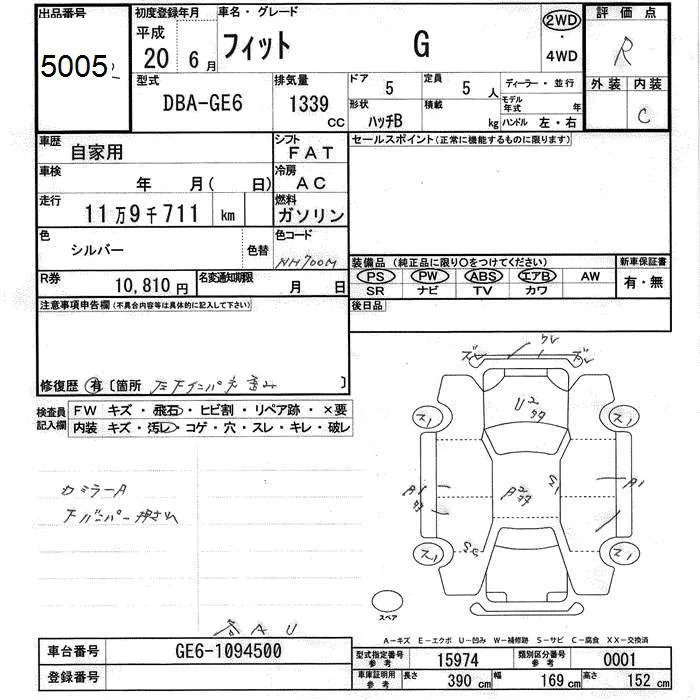 出品番号
5005
初度登録年月
平成
20 年 6月
車名・グレード
フィット G
2WD
・
4WD
評価点
R
外装 内装
C
型式
DBA-GE6
排気量
1339
CC
ドア
5
定員
5 人
ディーラー・並行
形状
ハッチB
積載
kg
モデル年式
年
ハンドル 左・右
車歴
自家用
シフト
FAT
セールスポイント(正常に機能するものに限ります)
車検
年 月( 日)
冷房
AC
走行
11万9千711 km
燃料
ガソリン
色
シルバー
色替
色コード
NH700M
装備品(純正品に限り○をつけてください)
新車保証書
PS PW ABS エアB AW
有・無
SR ナビ TV カワ
R券
10,810円
名変通知期限
月 日
後日品
注意事項申告欄(不具合内容等は具体的に記入して下さい)
修復歴 有 [箇所 ]
検査員
記入欄
FW キズ・飛石・ヒビ割・リペア跡・×要
内装 キズ・汚レ・コゲ・穴・スレ・キレ・破レ
カミラーA
下バンパー押され
A U
U2
A2
A1
A1
スペア
A-キズ E-エクボ U-凹み W-補修跡 S-サビ C-腐食 XX-交換済
車台番号
GE6-1094500
登録番号
型式指定番号
参考
15974
類別区分番号
参考
0001
車庫証明用
参考
長さ 390 cm 幅 169 cm 高さ 152 cm